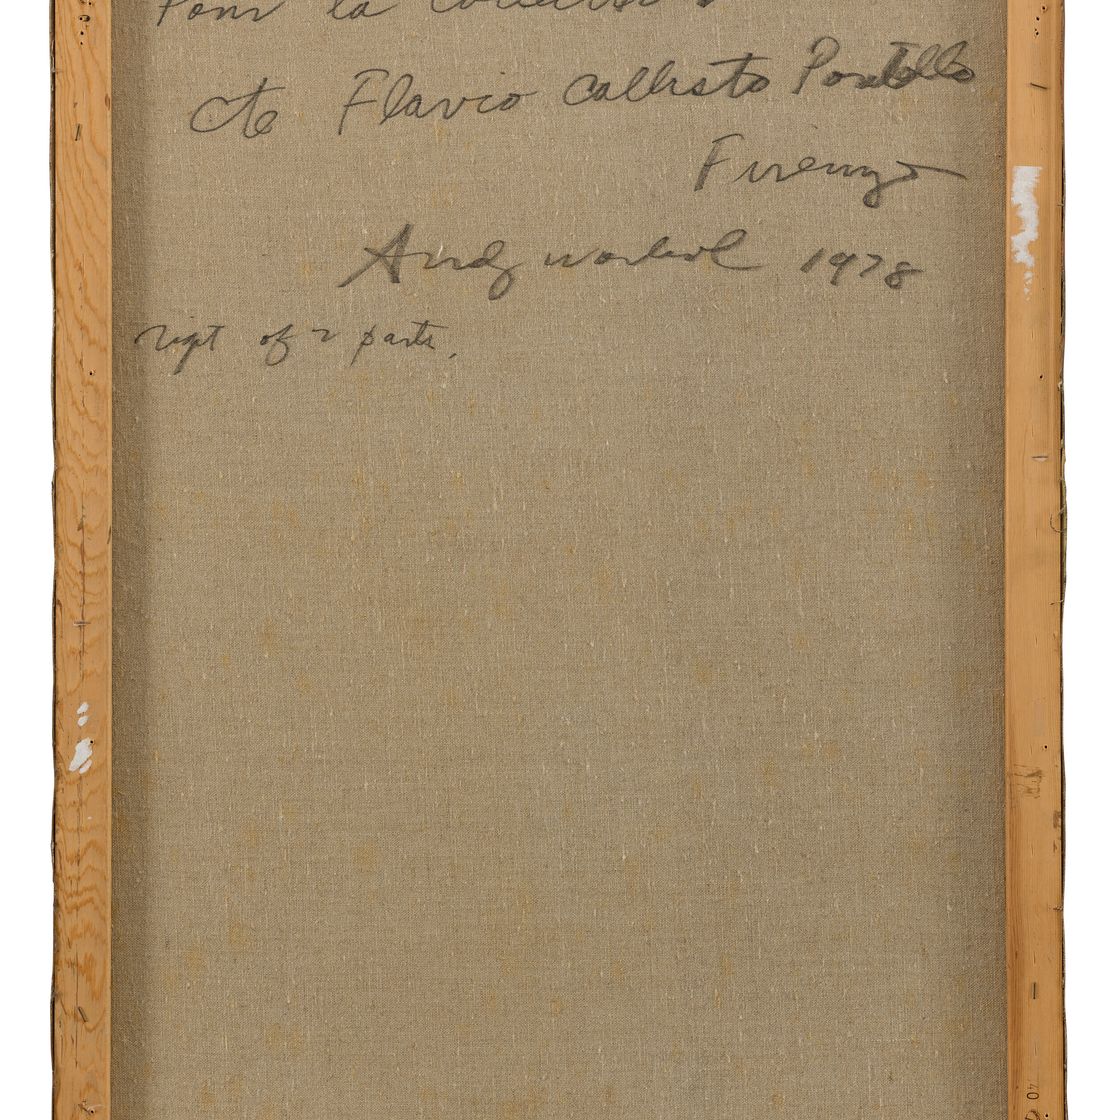 Pour la Collection
de Flavio Callisto Pontello
Firenze
Andy Warhol 1978
right of 2 parts.
40